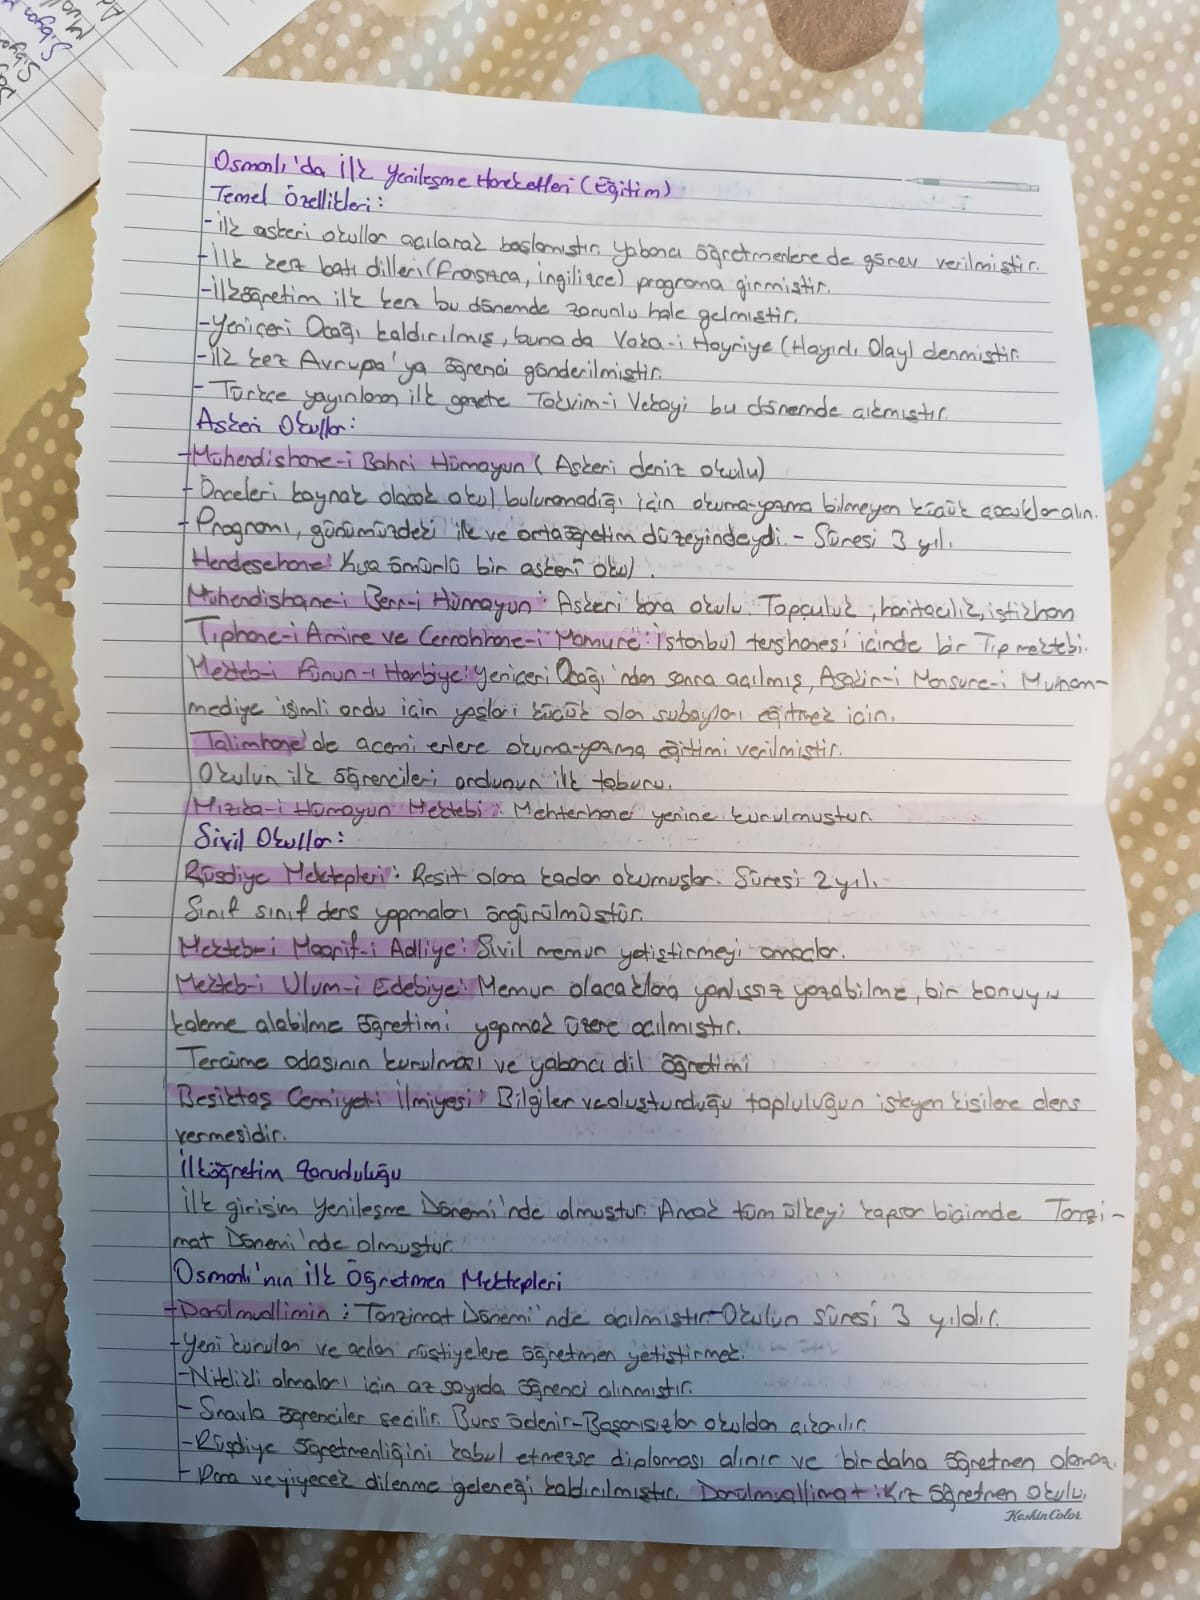 Osmanlı'da İlk Yenileşme Hareketleri (Eğitim)
Temel Özellikleri:
- İlk askeri okullar açılarak başlamıştır. Yabancı öğretmenlere de görev verilmiştir.
- İlk kez batı dilleri (Fransızca, ingilizce) programa girmiştir.
- İlköğretim ilk kez bu dönemde zorunlu hale gelmiştir.
- Yeniçeri Ocağı kaldırılmış, buna da Vaka-i Hayriye (Hayırlı Olay) denmiştir.
- İlk kez Avrupa'ya öğrenci gönderilmiştir.
- Türkçe yayınlanan ilk gazete Takvim-i Vekayi bu dönemde çıkmıştır.
Askeri Okullar:
- Mühendishane-i Bahri Hümayun (Askeri deniz okulu)
- Önceleri kaynak olacak okul bulunamadığı için okuma-yazma bilmeyen küçük çocuklar alın.
- Programı, günümüzdeki ilk ve ortaöğretim düzeyindeydi. - Süresi 3 yıl.
Hendesehane: Kısa ömürlü bir askeri okul.
Mühendishane-i Berr-i Hümayun: Askeri kara okulu. Topçuluk, haritacılık, istihkam
Tıphane-i Amire ve Cerrahhane-i Mamure: İstanbul tershanesi içinde bir Tıp mektebi.
Mekteb-i Fünun-ı Harbiye: Yeniçeri Ocağı'ndan sonra açılmış, Asakir-i Mansure-i Muham-
mediye isimli ordu için yaşları küçük olan subayları eğitmek için.
Talimhane'de acemi erlere okuma-yazma eğitimi verilmiştir.
Okulun ilk öğrencileri ordunun ilk taburu.
Mızıka-i Hümayun Mektebi: Mehterhane yerine kurulmuştur.
Sivil Okullar:
Rüşdiye Mektepleri: Reşit olana kadar okumuşlar. Süresi 2 yıl.
Sınıf sınıf ders yapmaları öngürülmüştür.
Mekteb-i Maarif-i Adliye: Sivil memur yetiştirmeyi amaçlar.
Mekteb-i Ulum-i Edebiye: Memur olacaklara yanlışsız yazabilme, bir konuyu
kaleme alabilme öğretimi yapmak üzere açılmıştır.
Tercüme odasının kurulması ve yabancı dil öğretimi
Beşiktaş Cemiyet-i İlmiyesi: Bilgiler ve oluşturduğu topluluğun isteyen kişilere ders
vermesidir.
İlköğretim Zoruduluğu
İlk girişim Yenileşme Dönemi'nde olmuştur. Ancak tüm ülkeyi kapsar biçimde Tanzi-
mat Dönemi'nde olmuştur.
Osmanlı'nın İlk Öğretmen Mektepleri
- Darülmuallimin: Tanzimat Dönemi'nde açılmıştır - Okulun süresi 3 yıldır.
- Yeni kurulan ve açılan rüştiyelere öğretmen yetiştirmek.
- Nitelikli olmaları için az sayıda öğrenci alınmıştır.
- Sınavla öğrenciler seçilir. Burs ödenir - Başarısızlar okuldan çıkarılır.
- Rüşdiye öğretmenliğini kabul etmezse diploması alınır ve bir daha öğretmen olamaz.
- Para ve yiyecek dilenme geleneği kaldırılmıştır. Darülmuallimat: Kız öğretmen okulu.
KeskinColor